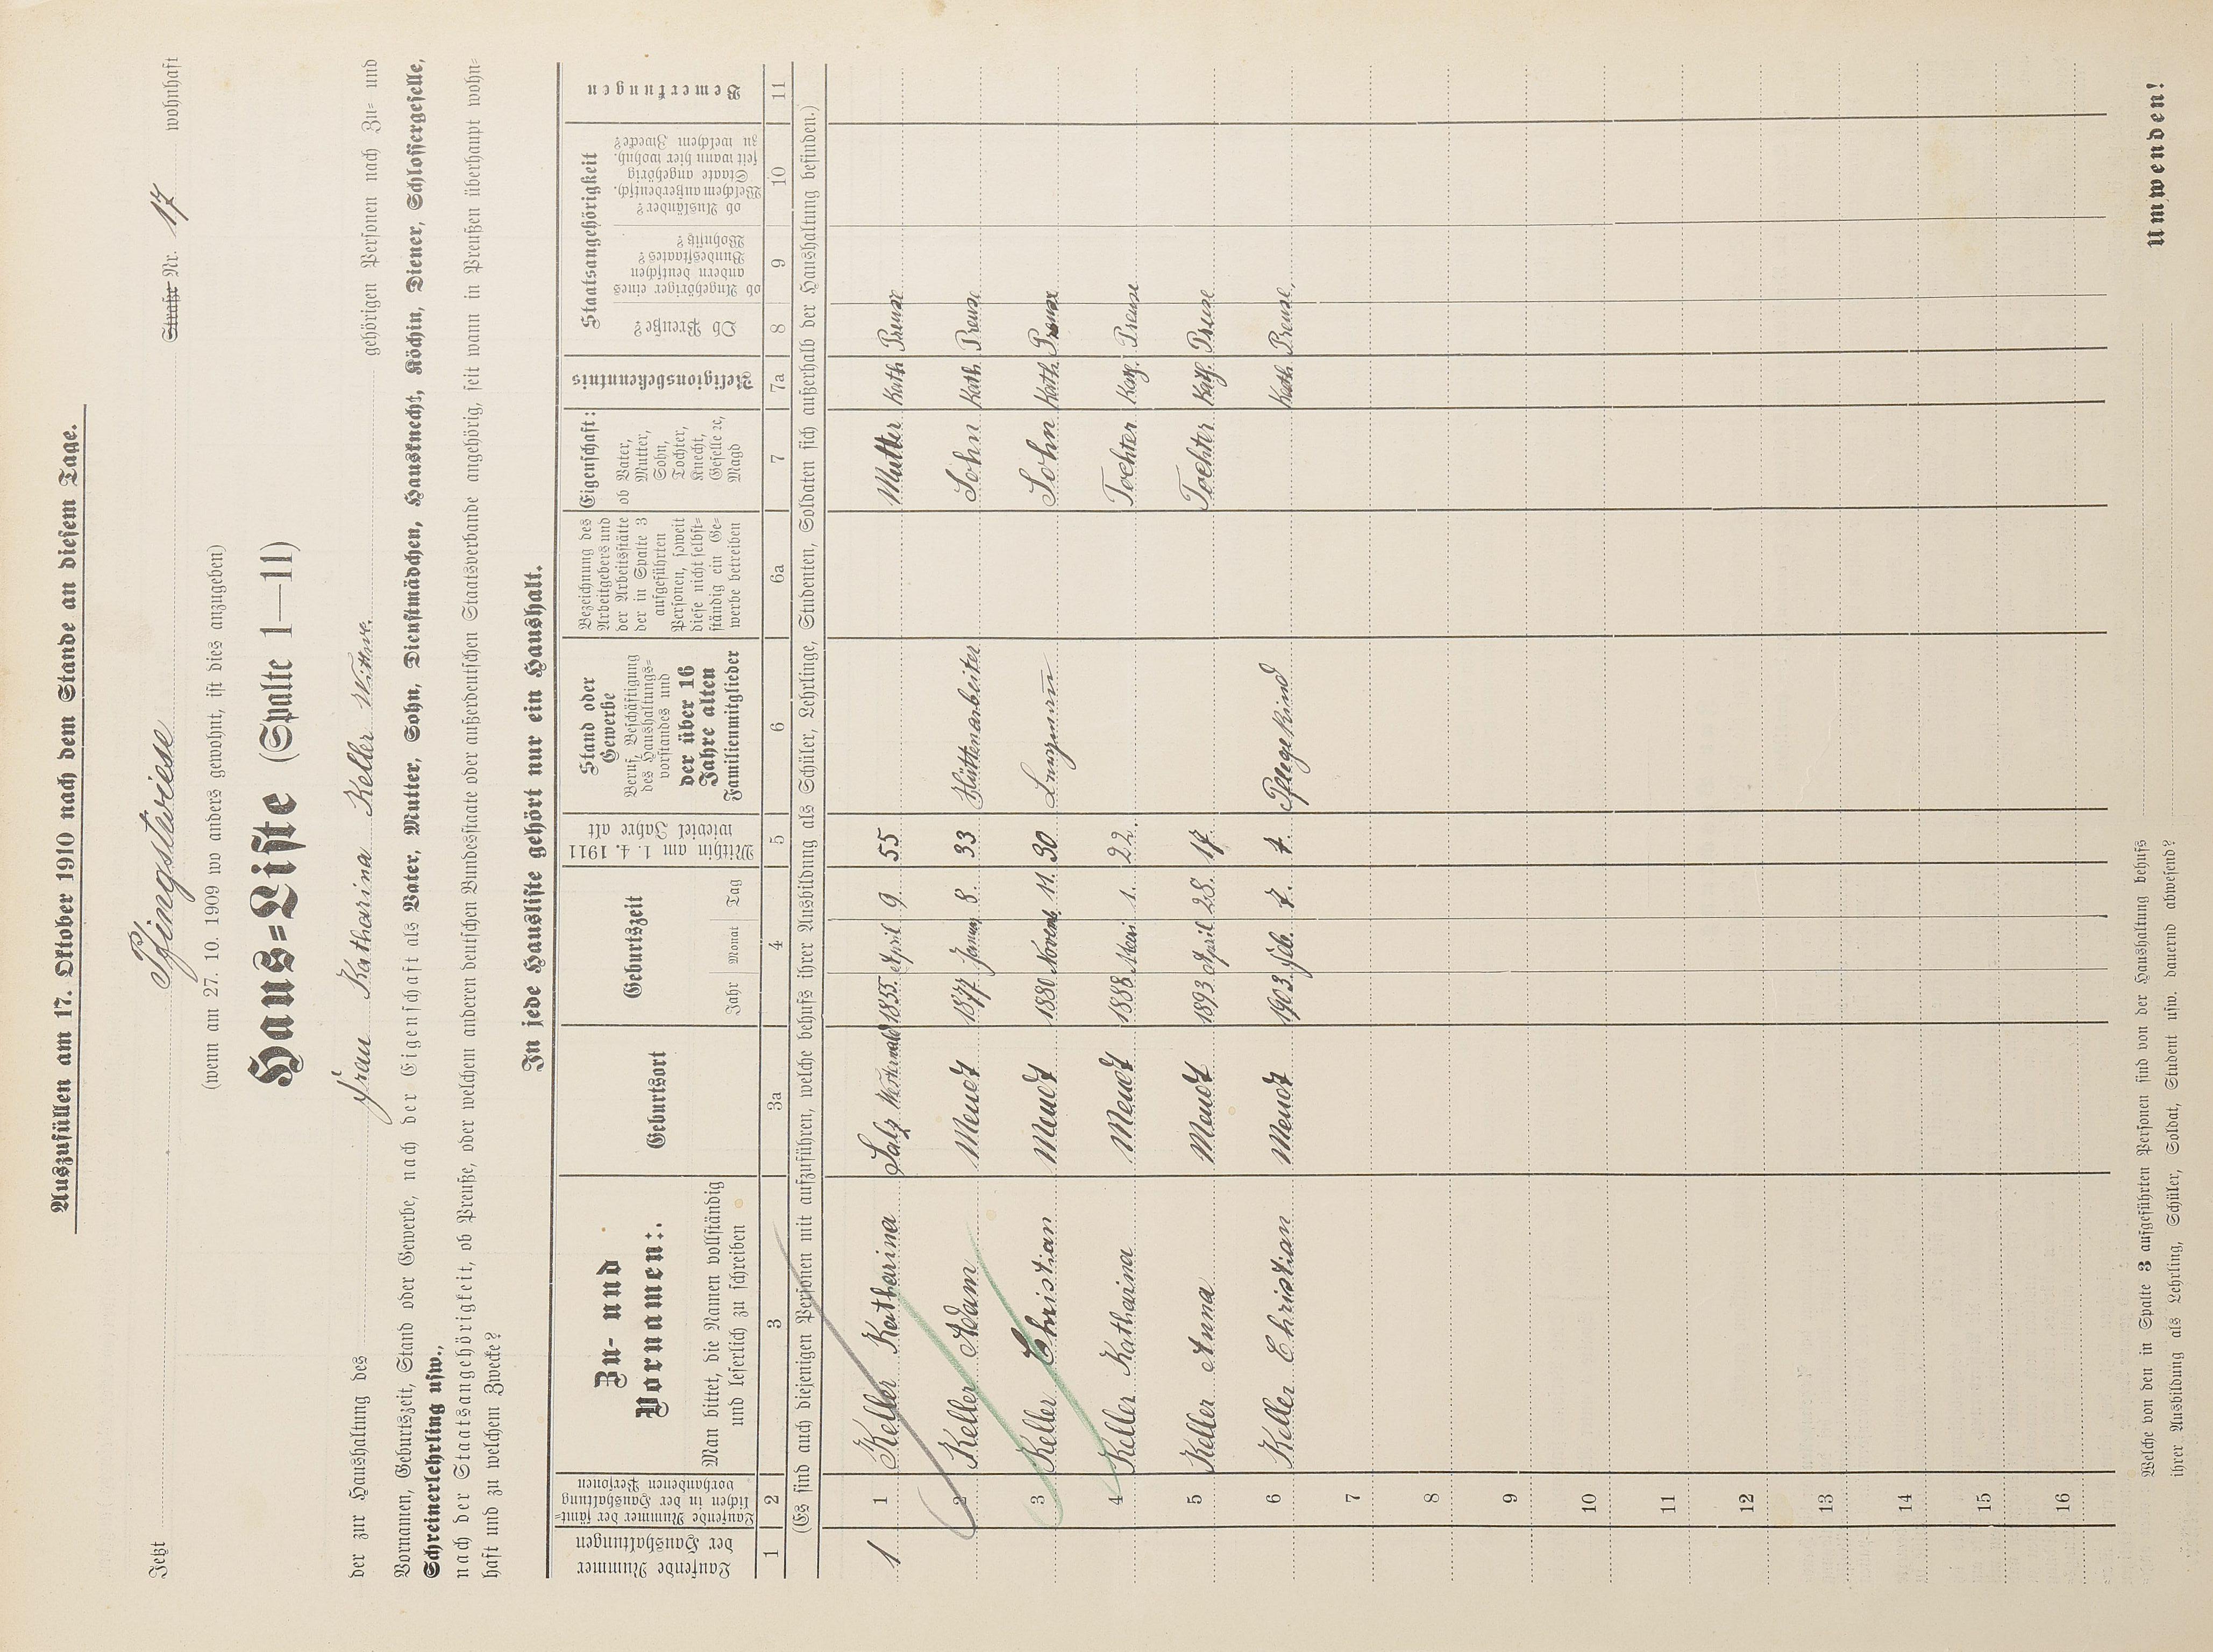 Auszufüllen am 17. Oktober 1910 nach dem Stande an diesem Tage.
Jetzt Pfingstwiese Straße Nr. 17 wohnhaft
(wenn am 27. 10. 1909 wo anders gewohnt, ist dies anzugeben)
Haus=Liste (Spalte 1—11)
der zur Haushaltung des Frau Katharina Keller Wittwe. gehörigen Personen nach Zu= und
Vornamen, Geburtszeit, Stand oder Gewerbe, nach der Eigenschaft als Vater, Mutter, Sohn, Dienstmädchen, Hausknecht, Köchin, Diener, Schlossergeselle,
Schreinerlehrling usw.,
nach der Staatsangehörigkeit, ob Preuße, oder welchem anderen deutschen Bundesstaate oder außerdeutschen Staatsverbande angehörig, seit wann in Preußen überhaupt wohn=
haft und zu welchem Zwecke?
In jede Hausliste gehört nur ein Haushalt.
Laufende Nummer der Haushaltungen
Laufende Nummer der sämt=lichen in der Haushaltung vorhandenen Personen
Zu- und Vornamen:
Man bittet, die Namen vollständig und leserlich zu schreiben
Geburtsort
Geburtszeit
Jahr Monat Tag
Mithin am 1. 4. 1911 wieviel Jahre alt
Stand oder Gewerbe
Beruf, Beschäftigung des Haushaltungs=vorstandes und der über 16 Jahre alten Familienmitglieder
Bezeichnung des Arbeitgebers und der Arbeitsstätte der in Spalte 3 aufgeführten Personen, soweit diese nicht selbst=ständig ein Ge=werbe betreiben
Eigenschaft:
ob Vater, Mutter, Sohn, Tochter, Knecht, Geselle ꝛc, Magd
Religionsbekenntnis
Staatsangehörigkeit
Ob Preuße?
ob Angehöriger eines andern deutschen Bundesstaates? Wohnsitz?
ob Ausländer? Welchem außerdeutsch. Staate angehörig seit wann hier wohnh. zu welchem Zwecke?
Bemerkungen
1 2 3 3a 4 5 6 6a 7 7a 8 9 10 11
(Es sind auch diejenigen Personen mit aufzuführen, welche behufs ihrer Ausbildung als Schüler, Lehrlinge, Studenten, Soldaten sich außerhalb der Haushaltung befinden.)
1 1 Keller Katharina Salz Westerwald 1855. April 9. 55 Mutter Kath. Preuse
2 Keller Adam Meudt 1877. Januar 8. 33 Hüttenarbeiter Sohn Kath. Preuse
3 Keller Christian Meudt 1880 Novemb. 11. 30 Sohn Kath. Preuse
4 Keller Katharina Meudt 1888 Mai 1. 22. Tochter Kath. Preuse
5 Keller Anna Meudt 1893 April 28. 17. Tochter Kath. Preuse
6 Keller Christian Meudt 1903. Feb. 7. 7. Pflegekind Kath. Preuse,
7
8
9
10
11
12
13
14
15
16
Welche von den in Spalte 3 aufgeführten Personen sind von der Haushaltung behufs
ihrer Ausbildung als Lehrling, Schüler, Soldat, Student usw. dauernd abwesend?
Umwenden!